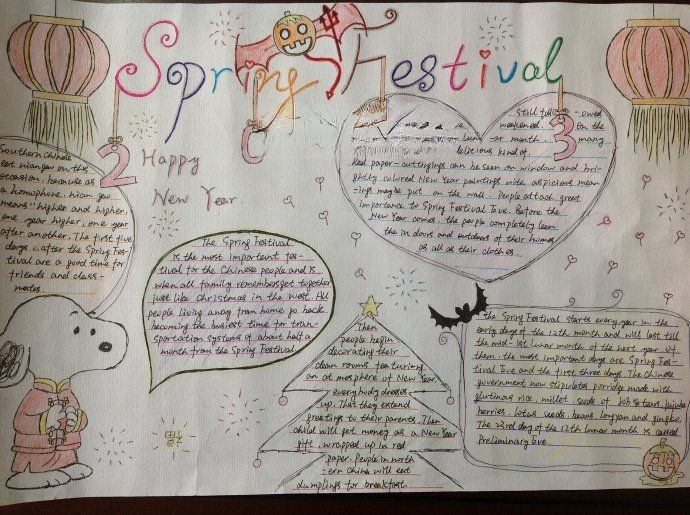 Spring Festival
2
Happy
New Year.
3
Southern Chinese
eat niangao on this
occasion, because as
a homophone, nian gao
means "higher and higher.
one year higher, one year
after another. The first five
days after the Spring Fes-
tival are a good time for
friends and class-
mates
The Spring Festival
is the most important fes-
tival for the Chinese people and is
when all family members get together
just like Christmas in the west. All
people living away from home go back
becoming the busiest time for tran-
sportation systems of about half a
month from the Spring Festival
still -owed
weakened. On the
lunar month, many
delicious kind of.
Red paper-cuttings can be seen on window and bri-
ghtly colored New Year paintings with auspicious mean
-ings maybe put on the wall. People attach great
importance to Spring Festival Eve. Before the
New Year comes, the people completely clean
the indoors and outdoors of their homes
as all as their clothes.
Then
people begin
decorating their
clean rooms featuring
an atmosphere of New Year.
everybody dresses
up. That they extend
greetings to their parents. Then
child will get money as a New Year
gift, wrapped up in red
paper. People in north
-ern China will eat
dumplings for breakfast
the Spring Festival starts every year in the
early days of the 12th month and will last till
the mid-1st lunar month of the next year. Of
them, the most important days are Spring Fes-
tival Eve and the first three days. The Chinese
government now stipulates porridge made with
glutinous rice, millet, seeds of Job's tears, jujube
berries, lotus seeds, beans, longan and gingko.
The 23rd day of the 12th lunar month is called
Preliminary Eve.